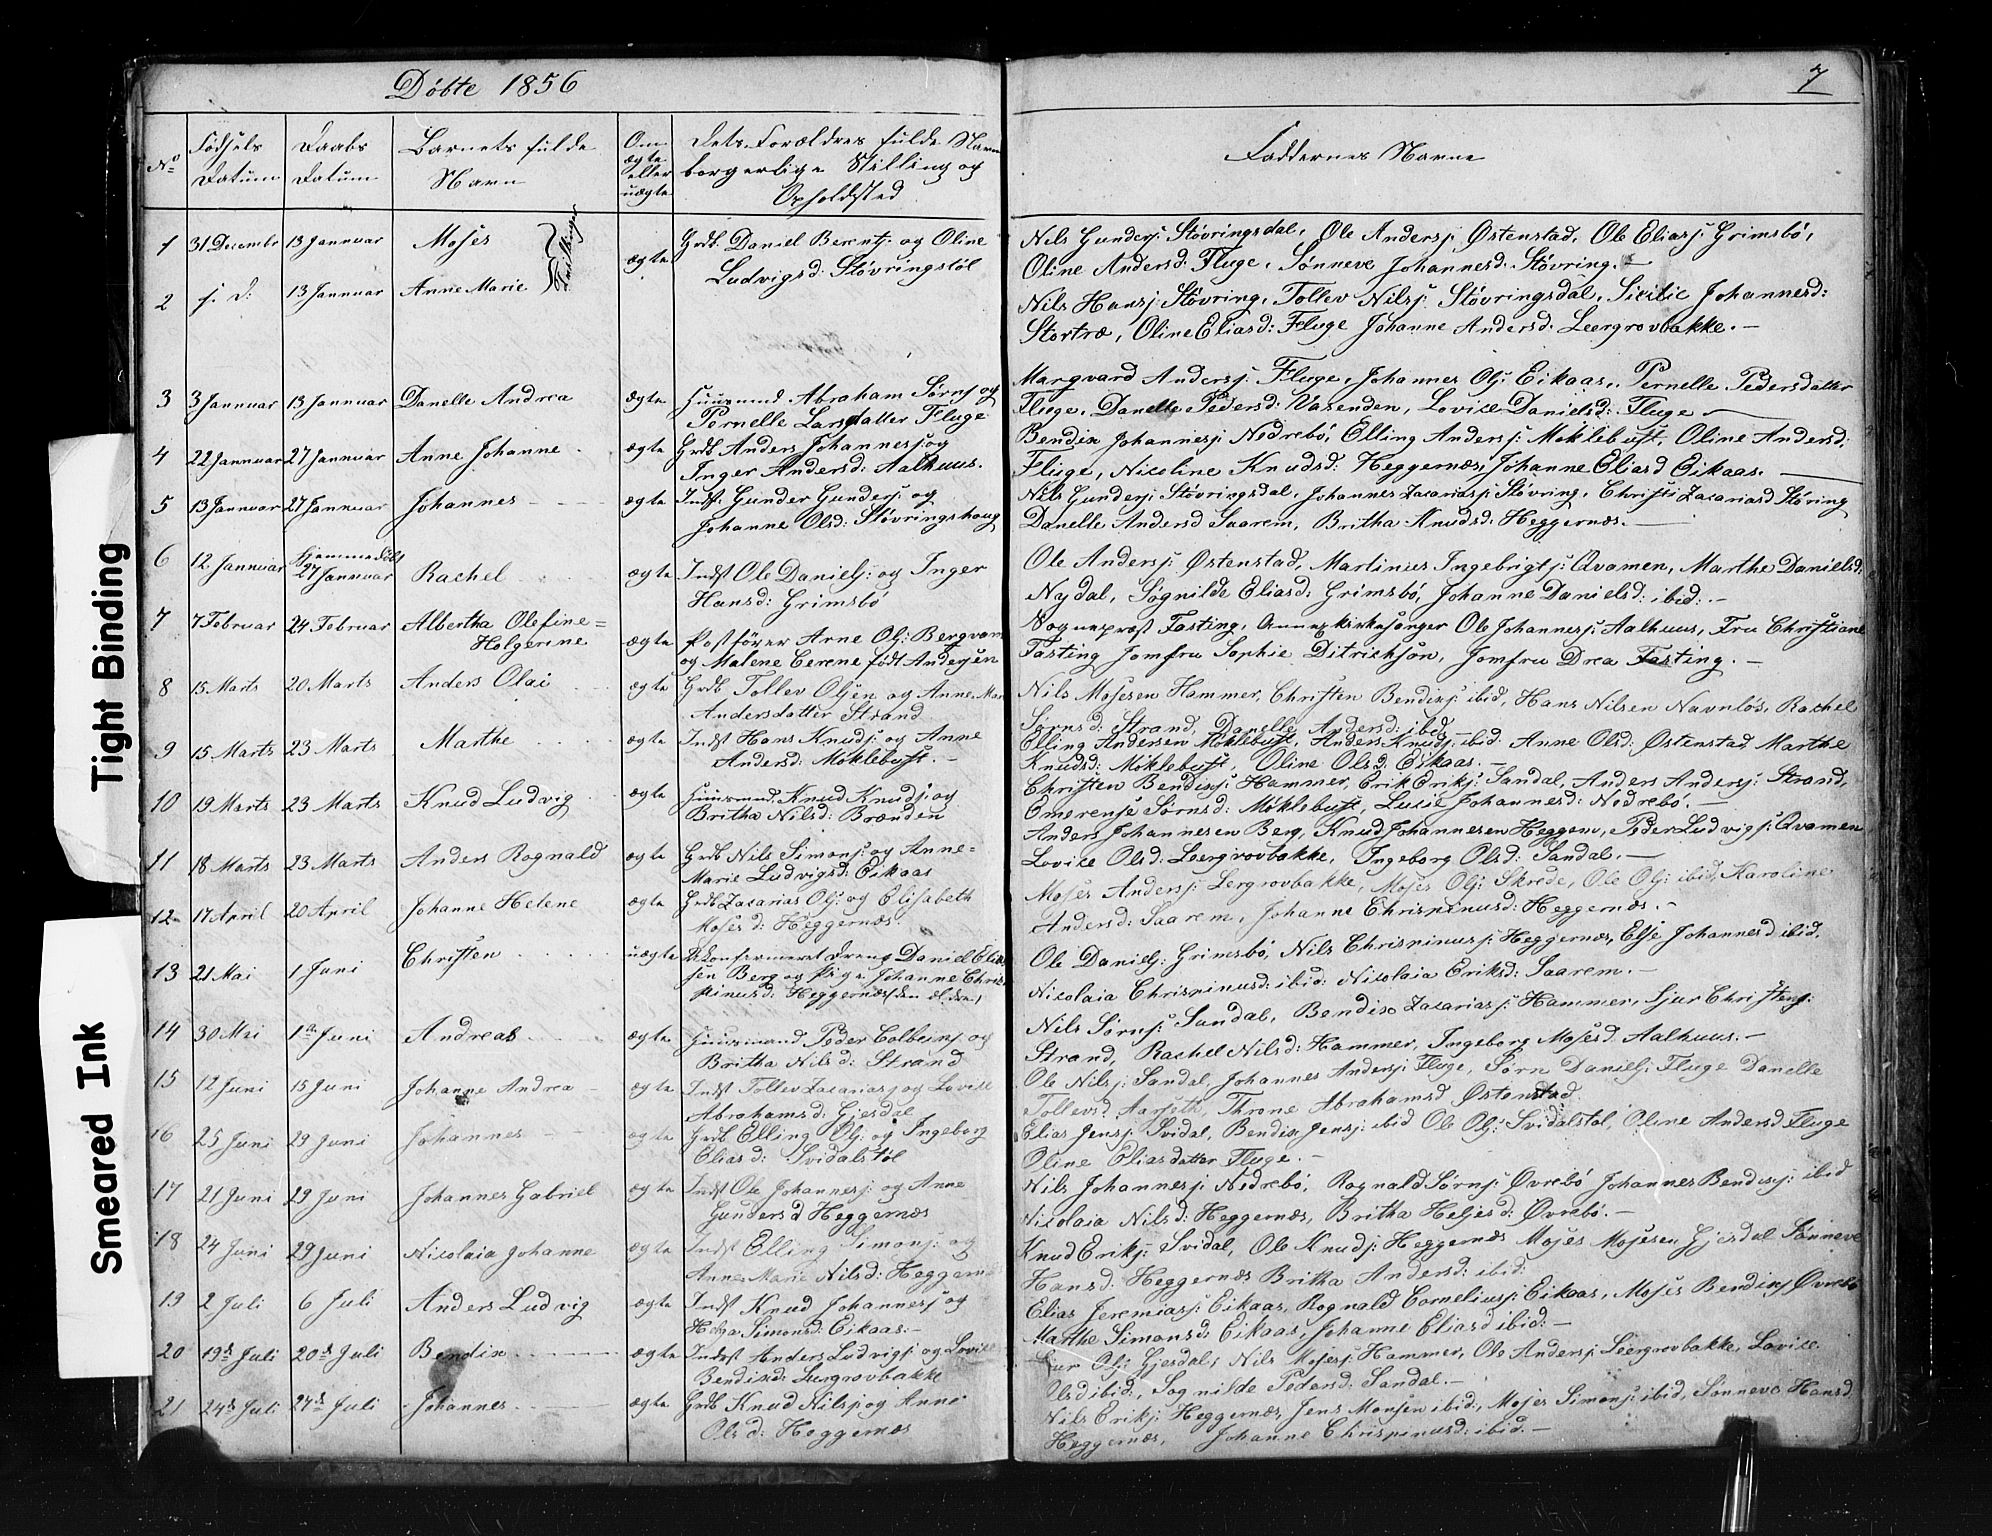 Döbte 1856
7
No
Födsels Datum
Daabs Datum
Barnets fulde Navn
Om ægte eller uægte
Dets Forældres fulde Navn borgerlige Stilling og Opholdsted
Faddernes Navne
1 31 Decembr 13 Januar Moses ægte Grdb. Daniel Berentsj og Oline
Ludvigsd: Stövringstöl
Nils Gundersj: Stövringsdal, Ole Andersj Østenstad, Ole Eliasj Grimsbö,
Oline Andersd: Fluge, Sönneve Johannesd: Stövring.
Tvillinger
2 s. D: 13 Januar Anne Marie
Nils Hansj: Stövring, Tollev Nilsj: Stövringsdal, Sicilie Johannesd:
Stortræ, Oline Eliasd: Fluge Johanne Andersd: Leergrovbakke.-
3 3 Januar 13 Januar Danelle Andrea ægte Huusmd Abraham Sörnsj og
Pernelle Larsdatter Fluge
Margvard Andersj: Fluge, Johannes Olsj Eikaas, Pernelle Pedersdatter
Fluge, Danelle Pedersd: Vasenden, Lovise Danielsd: Fluge
4 22 Januar 27 Januar Anne Johanne ægte Grdb Anders Johannesj og
Inger Andersd: Aalhuus.
Bendix Johannesj Nedrebö, Elling Andersj: Möklebust, Oline Andersd:
Fluge, Nicoline Knudsd: Heggernæs, Johanne Eliasd Eikaas.
5 13 Januar 27 Januar Johannes ægte Indst: Gunder Gundersj og
Johanne Olsd: Stövringshaug
Nils Gundersj Stövringsdal, Johannes Zacariasj Stövring, Christi Zacariasd Störing
Danelle Andersd Saarem, Britha Knudsd: Heggernæs.
6 12 Januar Hjemmedöbt
27 Januar Rachel ægte Indst Ole Danielsj: og Inger
Hansd: Grimsbö
Ole Andersj: Østenstad, Martinus Ingebrigtsj: Qvamen, Marthe Danielsd:
Nydal, Sögnilde Eliasd: Grimsbö, Johanne Danielsd: ibid:-
7 7 Februar 24 Februar Albertha Olefine=
Holgerine ægte Postförer Arne Olsj: Bergvam
og Malene Cerene født Andersen
Sognepræst Fasting, Annexkirkesanger Ole Johannesj: Aalhuus, Fru Christiane
Fasting Jomfru Sophie Ditrichson, Jomfru Drea Fasting.-
8 15 Marts 20 Marts Anders Olai ægte Grdb Tollev Olsen og Anne Mar
Andersdatter Strand
Nils Mosesen Hammer, Christen Bendixsj: ibid, Hans Nilsen Navnlös, Rachel
Sörnsd: Strand, Danelle Andersd: ibid
9 15 Marts 23 Marts Marthe ægte Indst Hans Knudsj: og Anne
Andersd: Möklebust.-
Elling Andersen Möklebust, Anders Knudsj: ibid: Anne Olsd: Østenstad, Marthe
Knudsd: Möklebust, Oline Olsd: Eikaas.
10 19 Marts 23 Marts Knud Ludvig ægte Huusmd. Knud Knudsj. og
Britha Nilsd: Brænden
Christen Bendixsj: Hammer, Erik Eriksj: Sandal, Anders Andersj: Strand,
Omerense Sörnsd: Möklebust, Lucie Johannesd: Nedrebö.
11 18 Marts 23 Marts Anders Rognald ægte Grdb Nils Simonsj: og Anne=
Marie Ludvigsd: Eikaas
Anders Johannesen Berg, Knud Johannesen Heggem, Peder Ludvigsj: Qvamen
Lovise Olsd: Leergrovbakke, Ingeborg Olsd: Sandal.-
12 17 April 20 April Johanne Helene ægte Grdb Zacarias Olsj: og Elisabeth
Mosesd: Heggernæs.
Moses Andersj: Lergrovbakke, Moses Olsj: Skrede, Ole Olsj: ibid, Karoline
Andersd: Saarem, Johanne Chrispinusd: Heggernæs.-
13 21 Mai 1 Juni Christen uægte Ukonfirmeret Dreng Daniel Elias
sen Berg og Pige Johanne Chris
pinusd: Heggernæs
Ole Danielsj: Grimsbö, Nils Chrispinusj: Heggernæs, Else Johannesd ibid.
Nicolaia Chrispinusd: ibid: Nicolaia Eriksd: Saarem.-
14 30 Mai 1te Juni Andreas ægte Huusmand Peder Colbensj og
Britha Nilsd: Strand
Nils Sörnsj: Sandal, Bendix Zacariasj: Hammer, Sjur Christensj:
Strand, Rachel Nilsd: Hammer, Ingeborg Mosesd Aalhuus.-
15 12 Juni 15 Juni Johanne Andrea ægte Indst Tollev Zacariasj og Lovise
Abrahamsd: Gjesdal
Ole Nilsj: Sandal, Johannes Andersj Fluge, Sörn Danielsj: Fluge Danelle
Tollevsd. Aarseth, Throne Abrahamsd Østenstad
16 25 Juni 29 Juni Johannes ægte Grdb Elling Olsj: og Ingeborg
Eliasd: Svidalstöl
Elias Jensj: Svidal, Bendix Jensj: ibid Ole Olsj: Svidalstöl, Oline Andersd Fluge
Oline Eliasdatter Fluge.-
17 21 Juni 29 Juni Johannes Gabriel ægte Indst Ole Johannesj: og Anne
Gundersd Heggernæs
Nils Johannesj: Nedrebö, Rognald Sörnsj: Övrebö Johannes Bendixsj: ibid
Nicolaia Nilsd: Heggernæs, Britha Heljesd: Övrebö.-
18 24 Juni 29 Juni Nicolaia Johanne ægte Indst Elling Simonsj: og
Anne Marie Nilsd: Heggernæs
Knud Eriksj: Svidal, Ole Knudsj: Heggernæs Moses Mosesen Gjesdal Sönneve
Hansd: Heggernæs Britha Andersd: ibid:
19 2 Juli 6 Juli Anders Ludvig ægte Indst Knud Johannesj og
Helga Simonsd: Eikaas.-
Elias Jeremiasj: Eikaas, Rognald Corneliusj: Eikaas, Moses Bendixsj Övrebö
Marthe Simonsd: Eikaas, Johanne Eliasd ibid:-
20 19de Juli 20de Juli Bendix ægte Indst Anders Ludvigsj og Lovise
Bendixd: Lergrovbakke
Sjur Olsj: Gjesdal, Nils Mosesj: Hammer, Ole Andersj: Leergrovbakke, Lovise
Olsd ibid., Sognilde Pedersd: Sandal.-
21 24de Juli 27de Juli Johannes ægte Grdb Knud Nilsj og Anne
Olsd: Heggernæs
Nils Eriksj: Heggernæs, Jens Monsen ibid:, Moses Simonsj: ibid, Sönneva Hansd
Heggernæs, Johanne Chrispinusd: ibid.-
Tight Binding
Smeared Ink